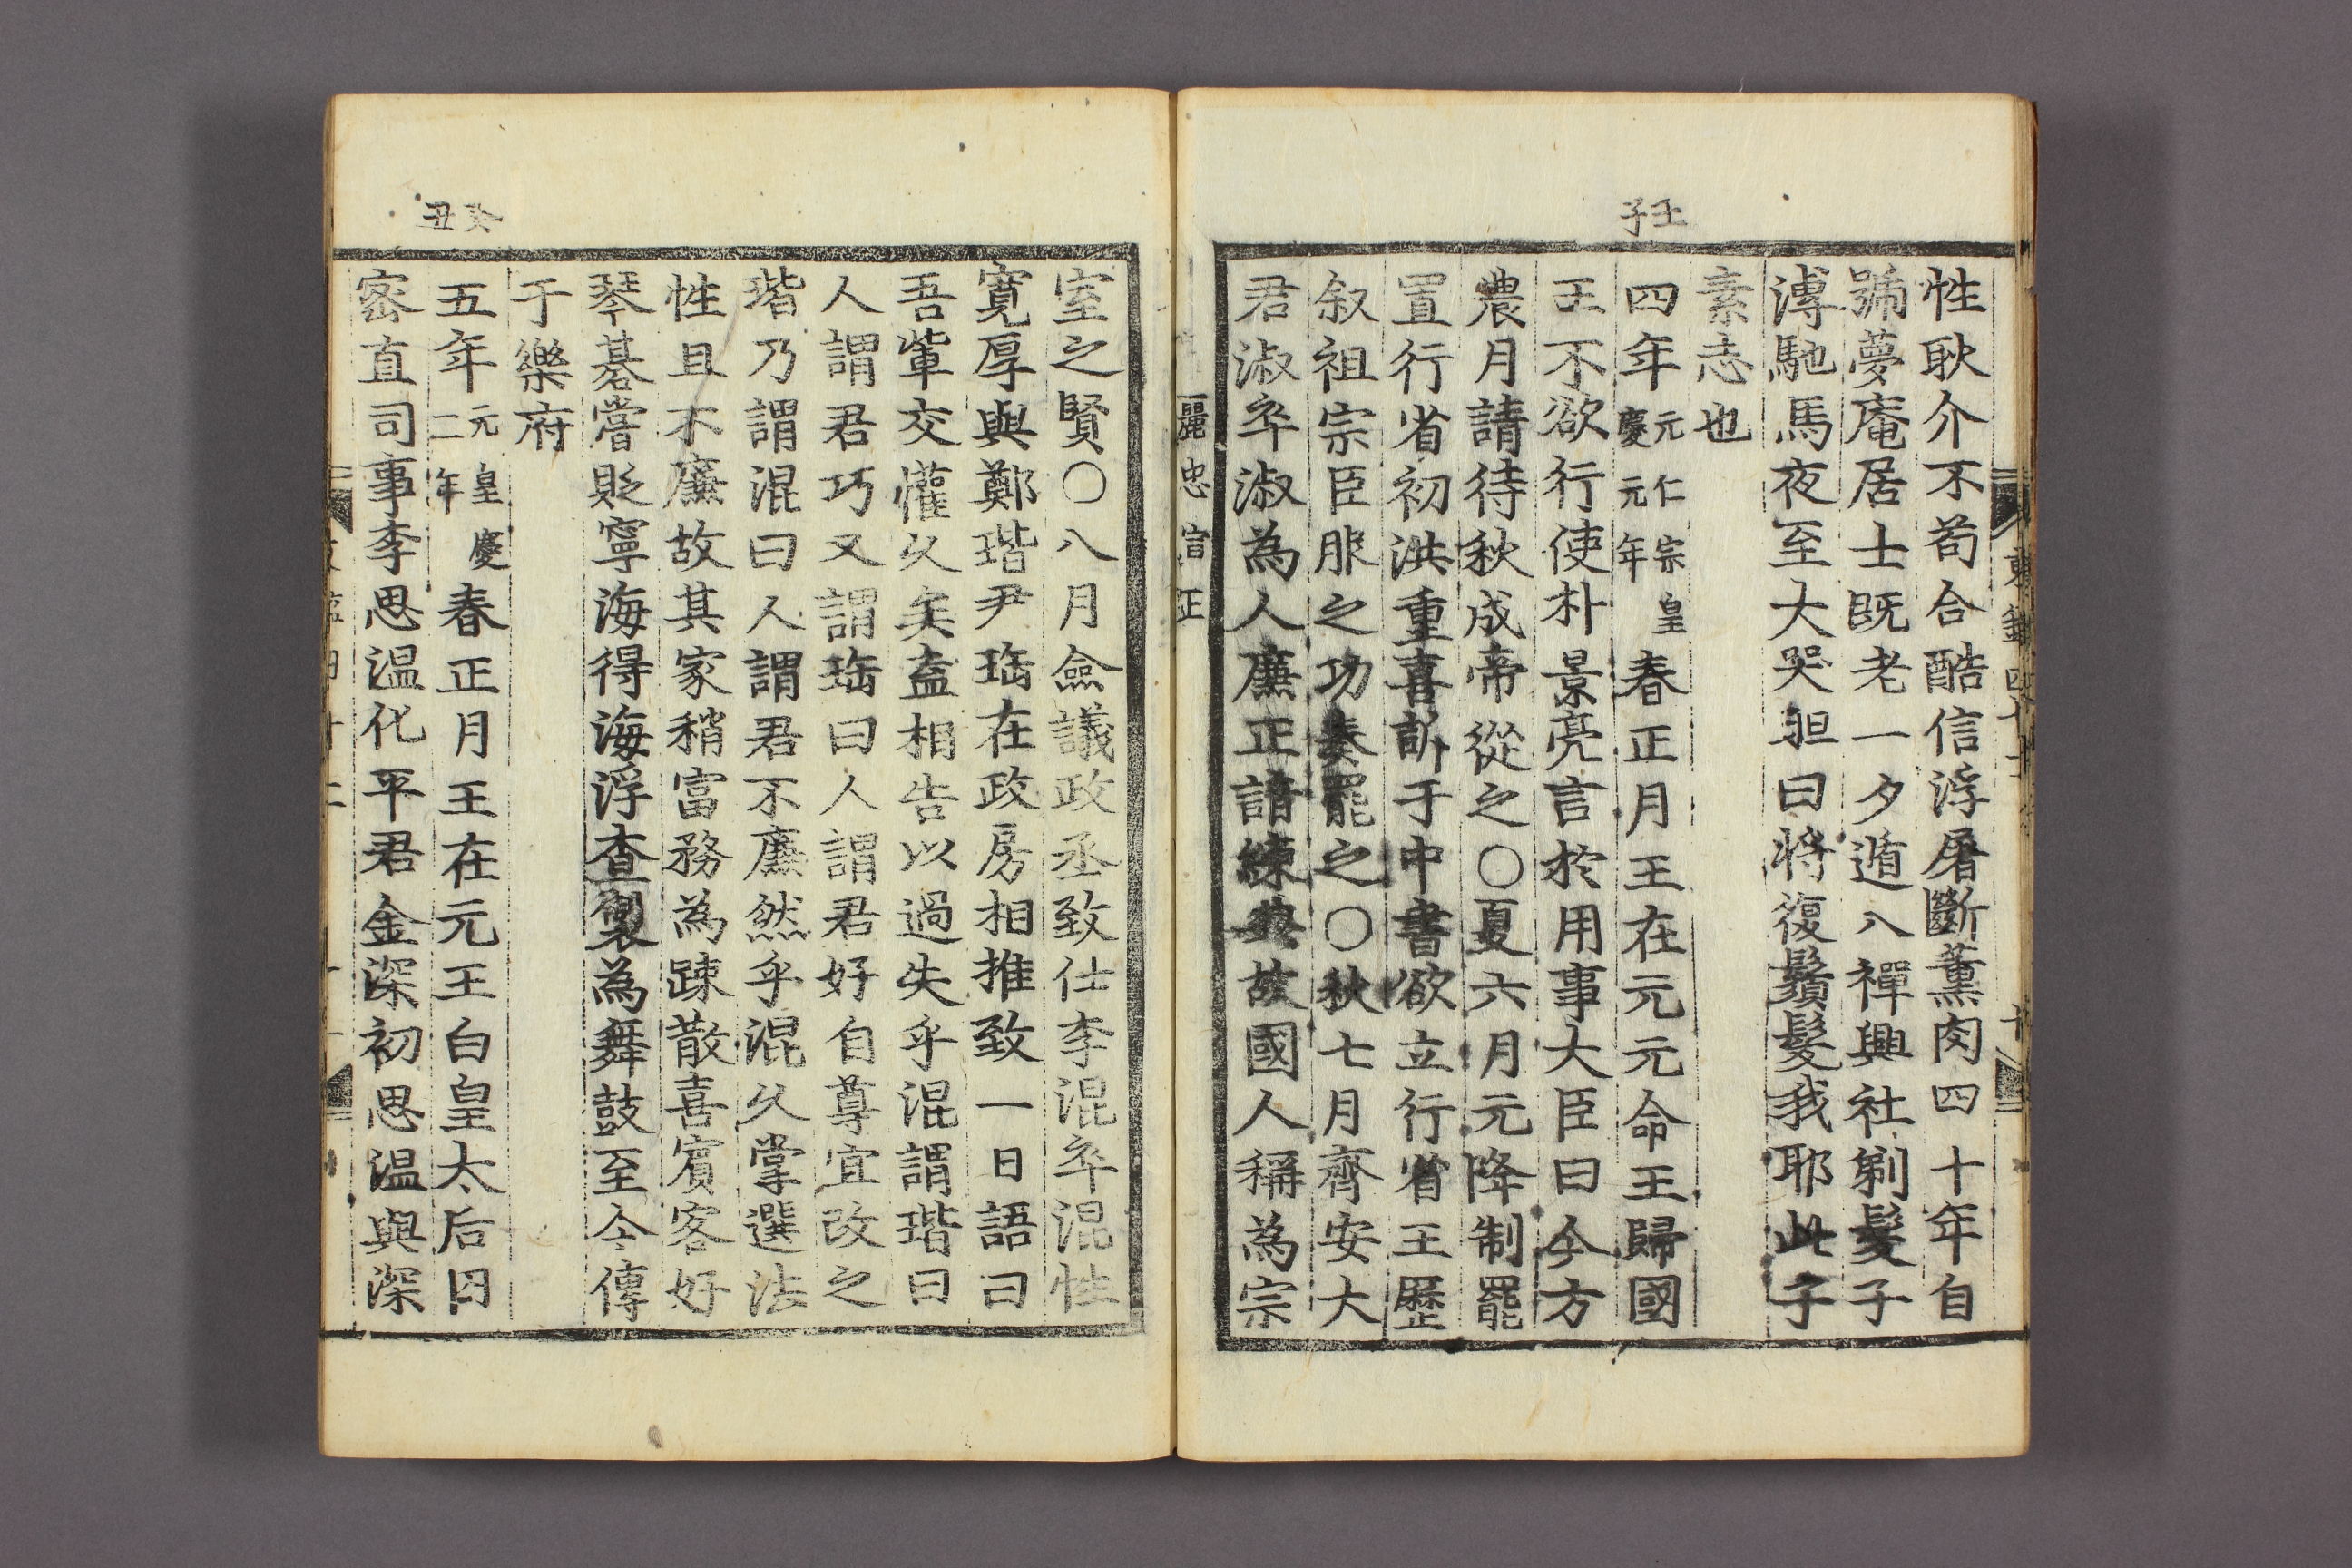 壬子
性耿介不苟合酷信浮屠斷薰肉四十年自
號夢庵居士既老一夕遁入禪興社剃髮子
溥馳馬夜至大哭𥄫曰將復鬚髮我耶此子
素志也
四年元仁宗皇慶元年春正月王在元元命王歸國
王不欲行使朴景亮言於用事大臣曰今方
農月請待秋成帝從之○夏六月元降制罷
置行省初洪重喜訴于中書欲立行省王歷
叙祖宗臣服之功奏罷之○秋七月齊安大
君淑卒淑為人廉正諳練典故國人稱為宗
麗忠宣王
癸丑
室之賢○八月僉議政丞致仕李混卒混性
寬厚與鄭瑎尹珤在政房相推致一日語曰
吾輩交懽久矣盍相告以過失乎混謂瑎曰
人謂君巧又謂珤曰人謂君好自尊宜改之
瑎乃謂混曰人謂君不廉然乎混久掌選法
性且不廉故其家稍富務為踈散喜賓客好
琴碁嘗貶寧海得海浮查製為舞鼓至今傳
于樂府
五年元皇慶二年春正月王在元王白皇太后曰
密直司事李思温化平君金深初思温與深